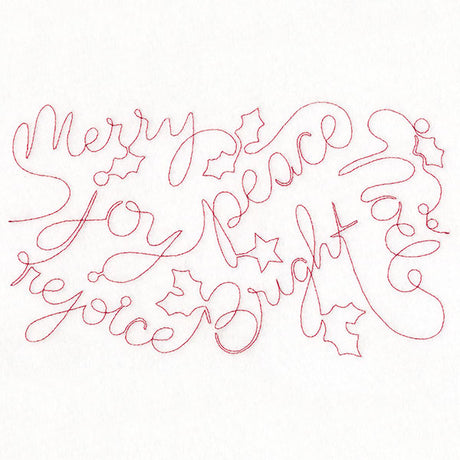 Merry
peace
joy
rejoice
Bright